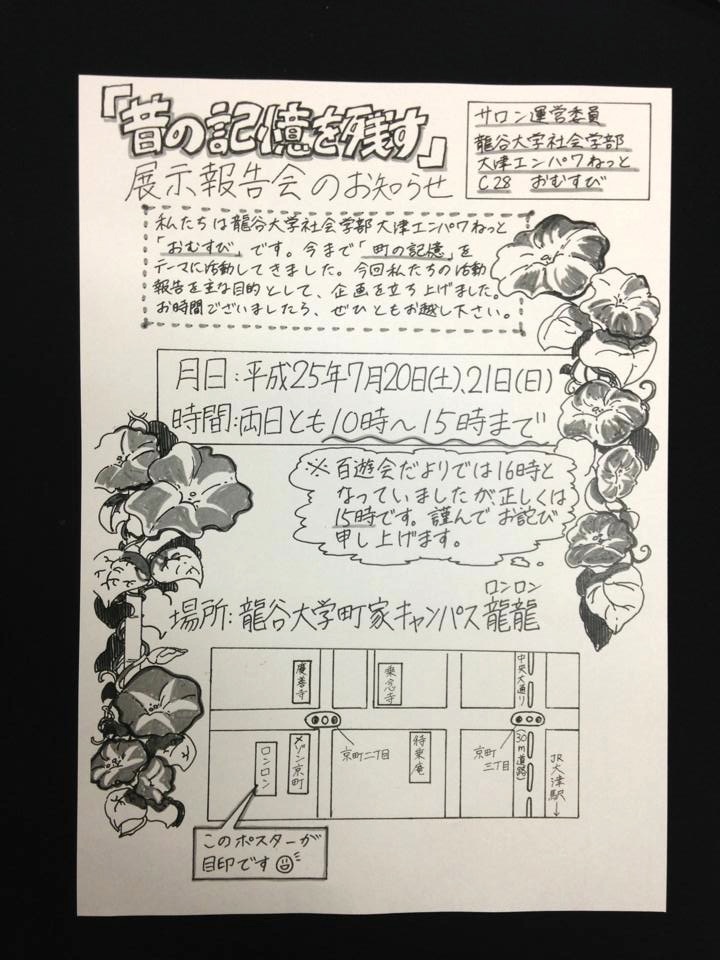 「昔の記憶を残す」
展示報告会のお知らせ
サロン運営委員
龍谷大学社会学部
大津エンパワねっと
C28 おむすび
私たちは龍谷大学社会学部大津エンパワねっと
「おむすび」です。今まで「町の記憶」を
テーマに活動してきました。今回私たちの活動
報告を主な目的として、企画を立ち上げました。
お時間ございましたら、ぜひともお越し下さい。
月日:平成25年7月20日(土)、21日(日)
時間:両日とも10時〜15時まで
※百遊会だよりでは16時と
なっていましたが正しくは
15時です。謹んでお詫び
申し上げます。
ロンロン
場所:龍谷大学町家キャンパス龍龍
慶善寺
乗念寺
中央大通り
(30m道路)
京町二丁目
京町
三丁目
ロンロン
メゾン京町
待来庵
JR大津駅
↓
このポスターが
目印です